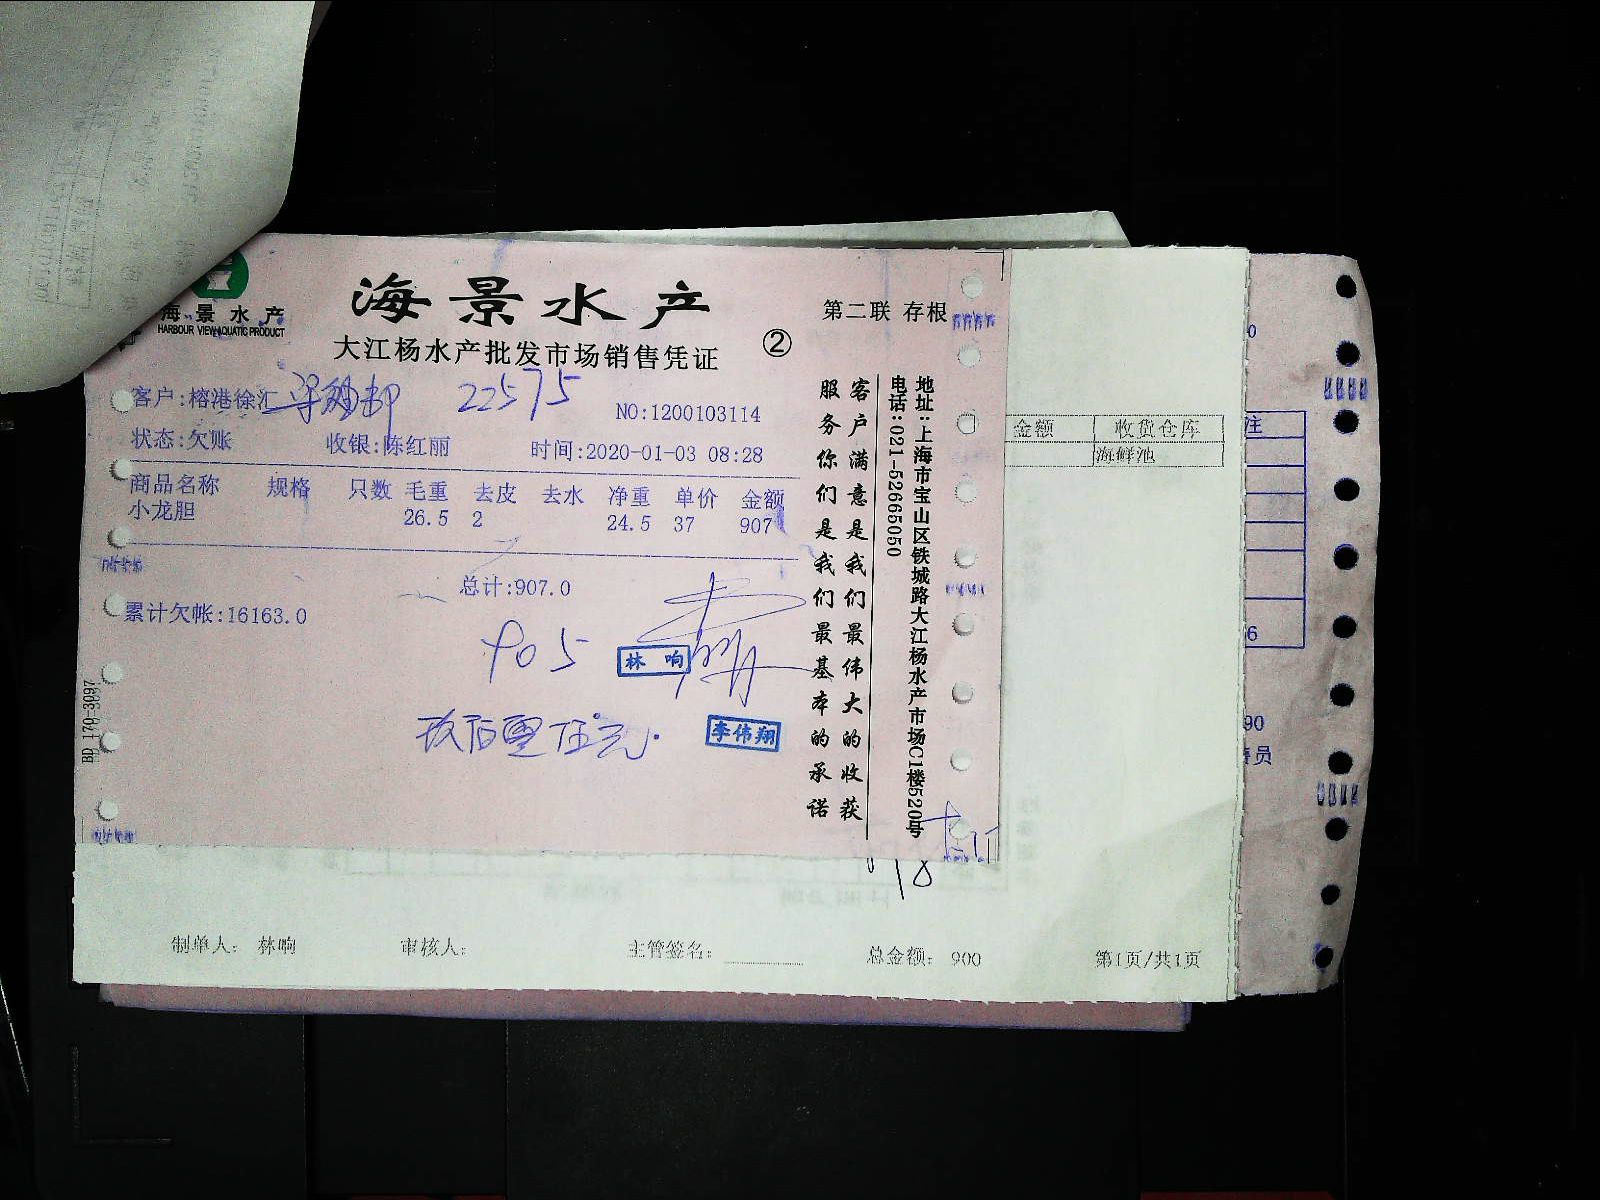 海景水产
HARBOUR VIEW AQUATIC PRODUCT
海景水产
大江杨水产批发市场销售凭证
②
第二联 存根
客户:榕港徐汇
22575
NO:1200103114
状态:欠账 收银:陈红丽 时间:2020-01-03 08:28
商品名称 规格 只数 毛重 去皮 去水 净重 单价 金额
小龙胆 26.5 2 24.5 37 907
总计:907.0
累计欠帐:16163.0
905
林 响
玖佰零伍元.
李伟翔
BD 170-3097
客户满意是我们最伟大的收获
服务你们是我们最基本的承诺
地址:上海市宝山区铁城路大江杨水产市场C1楼520号
电话:021-52665050
金额 收货仓库
海鲜池
注
0
6
90
员
18
制单人: 林响 审核人: 主管签名: 总金额: 900 第1页/共1页